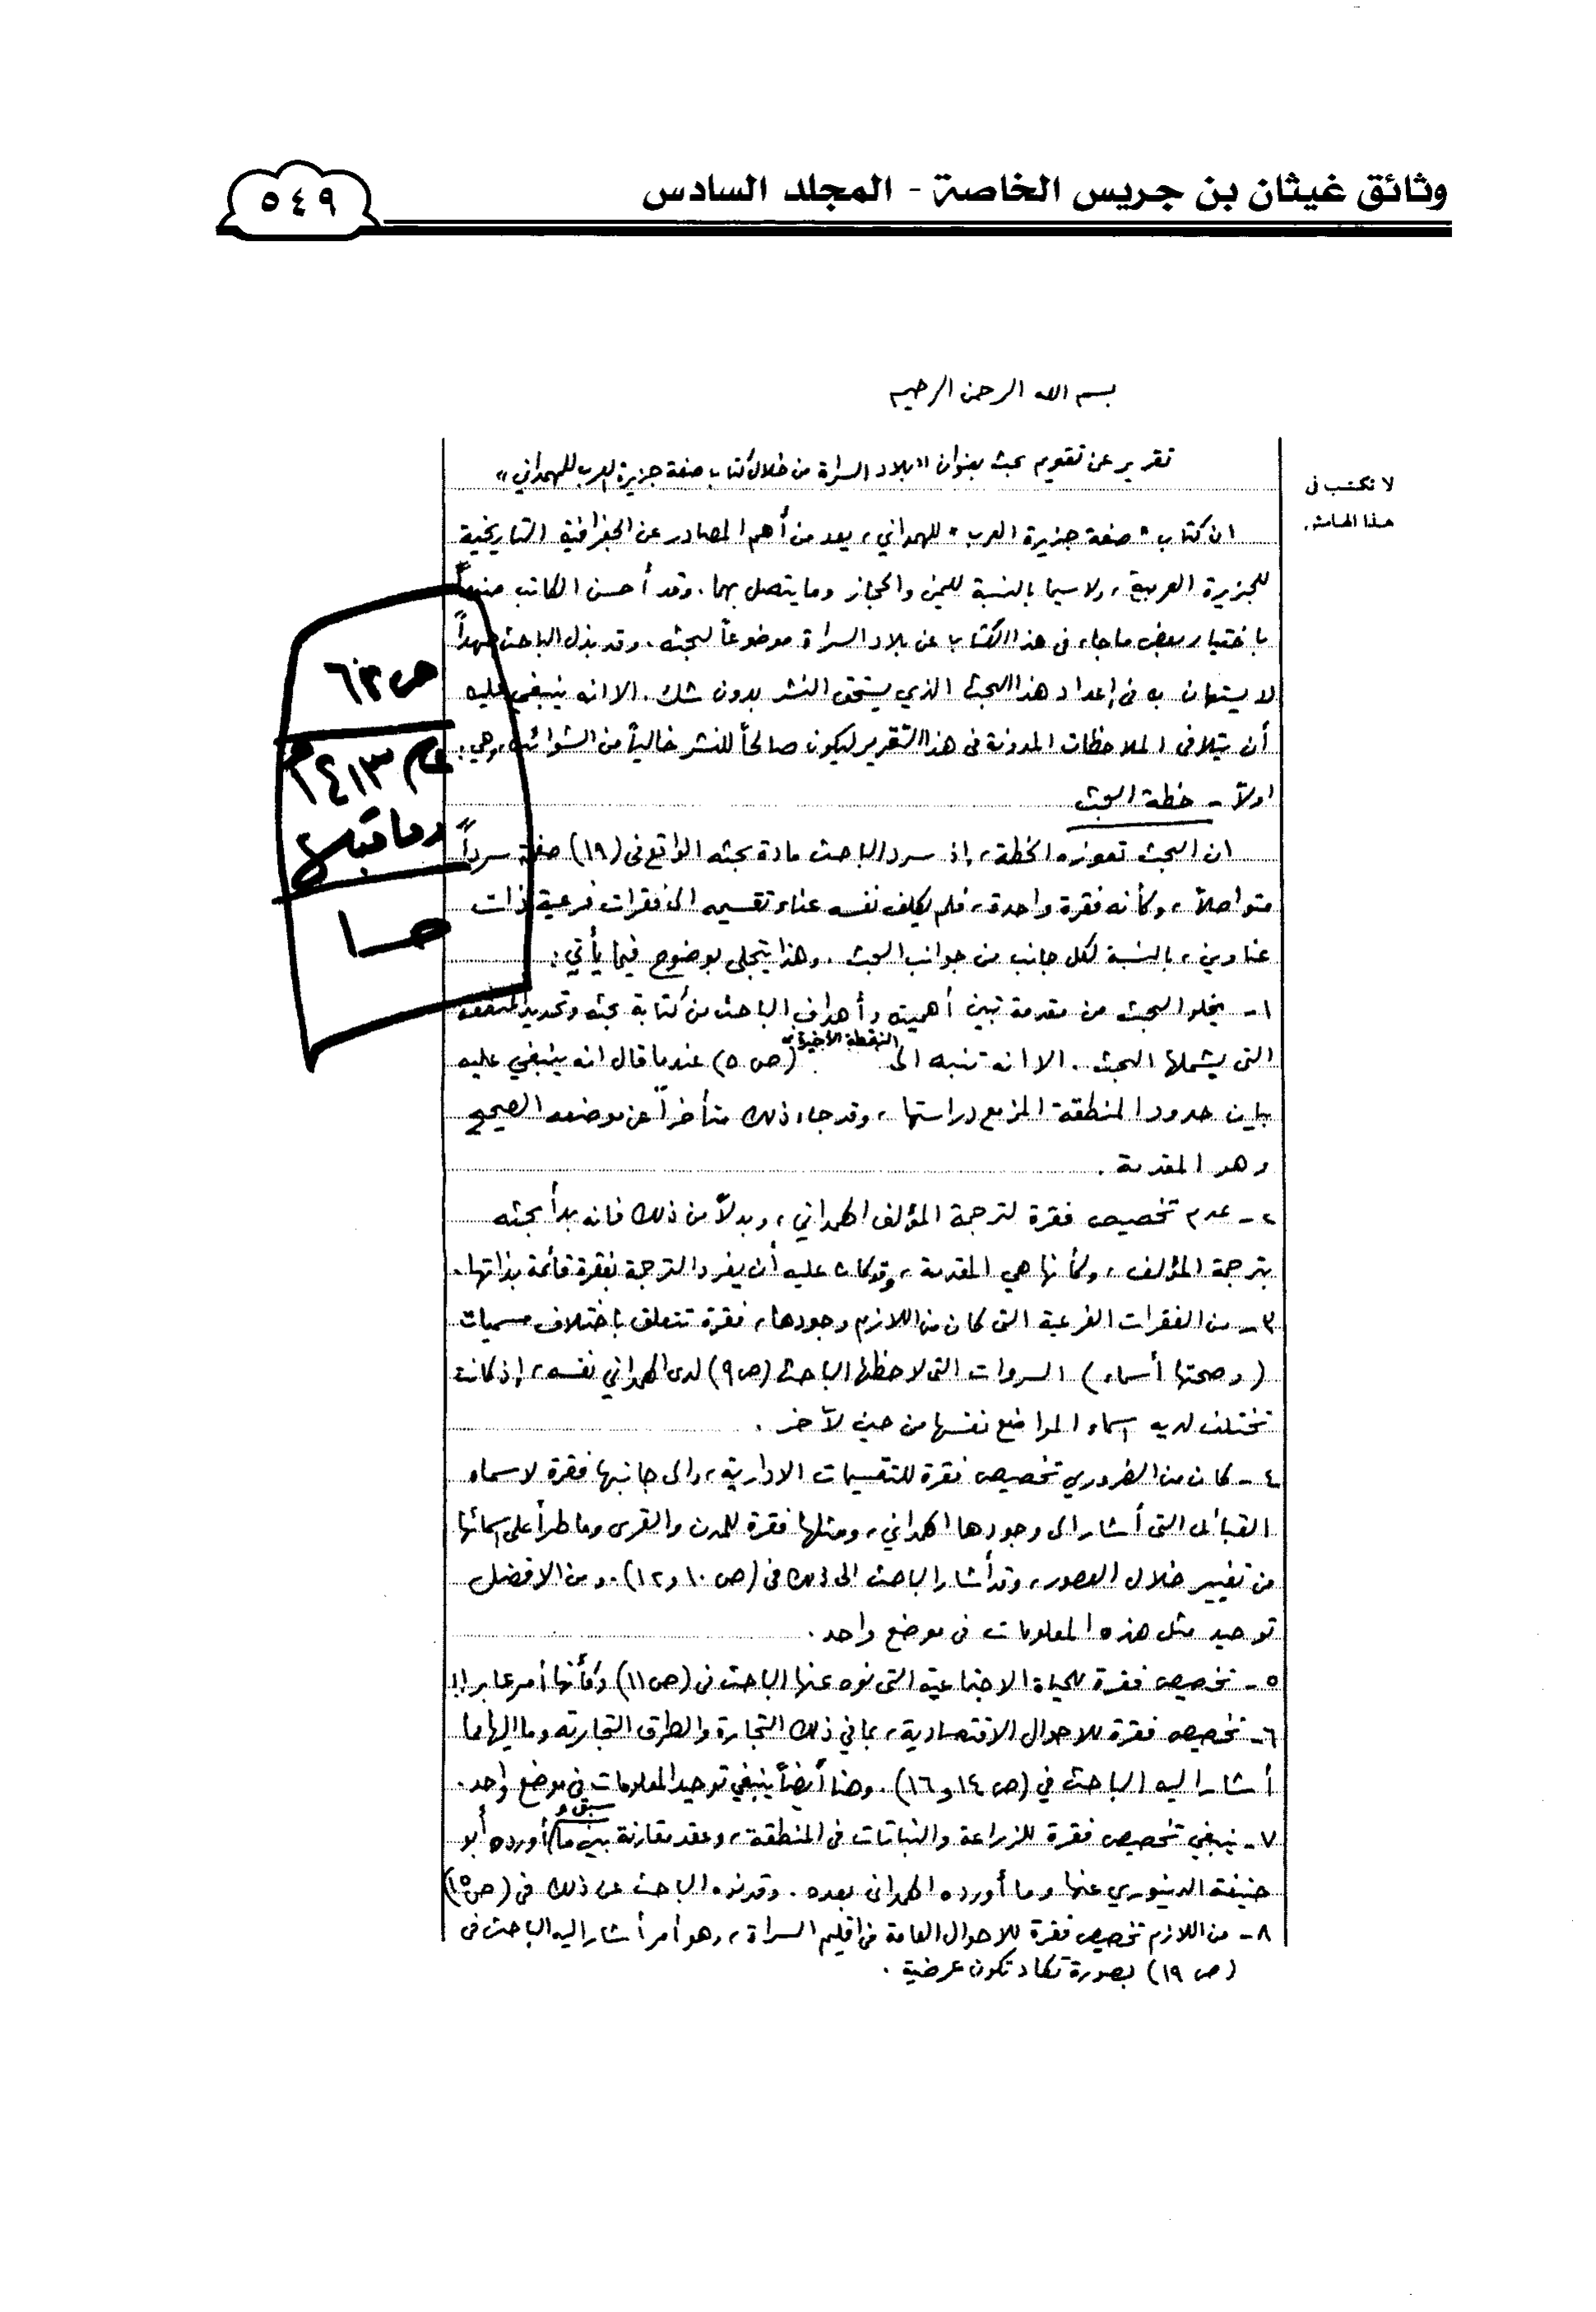 وثائق غيثان بن جريس الخاصة - المجلد السادس
٥٤٩
بسم الله الرحمن الرحيم
لا تكتب في
هذا الهامش
تقرير عن تقويم بحث بعنوان «بلاد السراة من خلال كتاب صفة جزيرة العرب للهمداني»
ان كتاب " صفة جزيرة العرب " للهمداني، يعد من أهم المصادر عن الجغرافية التاريخية
للجزيرة العربية، ولاسيما بالنسبة لليمن والحجاز وما يتصل بهما. وقد أحسن الكاتب صنعاً
باختيار بعض ما جاء في هذا الكتاب عن بلاد السراة موضوعاً لبحثه. وقد بذل الباحث جهداً
لا يستهان به في إعداد هذا البحث الذي يستحق النشر بدون شك. الا انه ينبغي عليه
أن يتلافى الملاحظات المدونة في هذا التقرير ليكون صالحاً للنشر خالياً من الشوائب، وهي:
اولاً - خطة البحث
ان البحث تعوزه الخطة، إذ سرد الباحث مادة بحثه الواقع في (١٩) صفحة سرداً
متواصلاً، وكأنه فقرة واحدة، فلم يكلف نفسه عناء تقسيمه الى فقرات فرعية ذات
عناوين، بالنسبة لكل جانب من جوانب البحث. وهذا يتجلى بوضوح فيما يأتي:
١- يخلو البحث من مقدمة تبين أهميته وأهداف الباحث من كتابة بحثه وتحديد المنطقة
التي يشملها البحث. الا انه تنبه الى النقطة الأخيرة (ص ٥) عندما قال انه ينبغي عليه
بيان حدود المنطقة المزمع دراستها، وقد جاء ذلك متأخراً عن موضعه الصحيح
وهو المقدمة.
٢- عدم تخصيص فقرة لترجمة المؤلف الهمداني، وبدلاً من ذلك فانه بدأ بحثه
بترجمة المؤلف، وكأنها هي المقدمة، وقد كان عليه أن يفرد الترجمة بفقرة قائمة بذاتها.
٣- من الفقرات الفرعية التي كان من اللازم وجودها، فقرة تتعلق باختلاف مسميات
(وصحتها أسماء) السروات التي لاحظها الباحث (ص ٩) لدى الهمداني نفسه، إذ كانت
تختلف لديه اسماء المواضع نفسها من حين لآخر.
٤- كان من الضروري تخصيص فقرة للتقسيمات الادارية، والى جانبها فقرة لاسماء
القبائل التي أشار الى وجودها الهمداني، ومثلها فقرة للمدن والقرى وما طرأ على اسمائها
من تغيير خلال العصور، وقد أشار الباحث الى ذلك في (ص ١٠ و ١٢). ومن الافضل
توحيد مثل هذه المعلومات في موضع واحد.
٥- تخصيص فقرة للحياة الاجتماعية التي نوه عنها الباحث في (ص ١١) وكأنها أمر عابر!!
٦- تخصيص فقرة للاحوال الاقتصادية، بما في ذلك التجارة والطرق التجارية وما اليها مما
أشار اليه الباحث في (ص ١٤ و ١٦). وهنا أيضاً ينبغي توحيد المعلومات في موضع واحد.
٧- ينبغي تخصيص فقرة للزراعة والنباتات في المنطقة، وعقد مقارنة بين ما سبق و أورده أبو
حنيفة الدينوري عنها وما أورده الهمداني بعده. وقد نوه الباحث عن ذلك في (ص ١٥)
٨- من اللازم تخصيص فقرة للاحوال العامة في اقليم السراة، وهو أمر أشار اليه الباحث في
(ص ١٩) بصورة تكاد تكون عرضية.
عام ١٤١٣
وما قبله